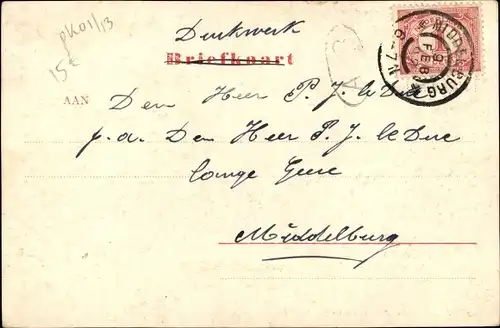 pk01/13
15€
Drukwerk
Briefkaart
MIDDELBURG
6-7N
9
FEB
AAN Den Heer P. J. le Duc
p.a. Den Heer P. J. le Duc
lange Geere
Middelburg